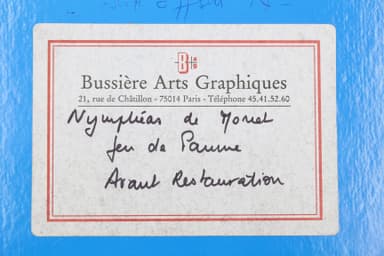 Bussière Arts Graphiques
21, rue de Châtillon - 75014 Paris - Téléphone 45.41.52.60
Nymphéas de Monet
Jeu de Paume
Avant Restauration